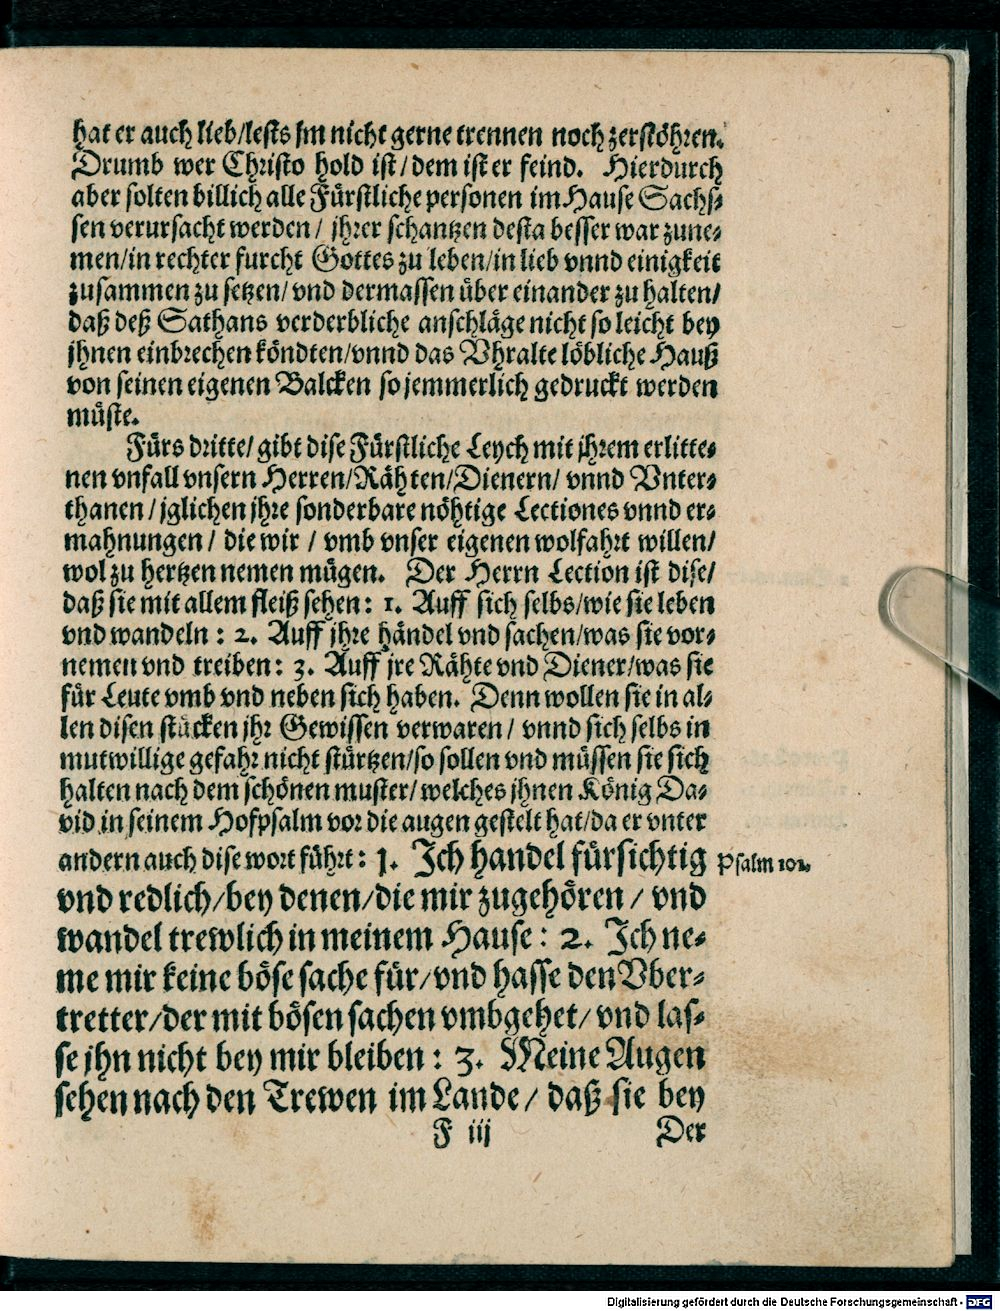 hat er auch lieb/lests jm nicht gerne trennen noch zerstöhren.
Drumb wer Christo hold ist/dem ist er feind. Hierdurch
aber solten billich alle Fürstliche personen im Hause Sachs-
sen verursacht werden/ jhrer schantzen desta besser war zune-
men/in rechter furcht Gottes zu leben/in lieb vnnd einigkeit
zusammen zu setzen/ vnd dermassen über einander zu halten/
daß deß Sathans verderbliche anschläge nicht so leicht bey
jhnen einbrechen köndten/vnnd das Vhralte löbliche Hauß
von seinen eigenen Balcken so jemmerlich gedruckt werden
müste.
Fürs dritte/ gibt dise Fürstliche Leych mit jhrem erlitte-
nen vnfall vnsern Herren/Rähten/Dienern/ vnnd Vnter-
thanen/ jglichen jhre sonderbare nöhtige Lectiones vnnd er-
mahnungen/ die wir/ vmb vnser eigenen wolfahrt willen/
wol zu hertzen nemen mügen. Der Herrn Lection ist dise/
daß sie mit allem fleiß sehen: 1. Auff sich selbs/wie sie leben
vnd wandeln: 2. Auff jhre händel vnd sachen/was sie vor-
nemen vnd treiben: 3. Auff jre Rähte vnd Diener/was sie
für Leute vmb vnd neben sich haben. Denn wollen sie in al-
len disen stücken jhr Gewissen verwaren/ vnnd sich selbs in
mutwillige gefahr nicht stürtzen/so sollen vnd müssen sie sich
halten nach dem schönen muster/ welches jhnen König Da-
vid in seinem Hofpsalm vor die augen gestelt hat/da er vnter
andern auch dise wort führt: 1. Ich handel fürsichtig
Psalm 101.
vnd redlich/bey denen/die mir zugehören/ vnd
wandel trewlich in meinem Hause: 2. Ich ne-
me mir keine böse sache für/vnd hasse den Vber-
tretter/der mit bösen sachen vmbgehet/ vnd las-
se jhn nicht bey mir bleiben: 3. Meine Augen
sehen nach den Trewen im Lande/ daß sie bey
F iij
Der
Digitalisierung gefördert durch die Deutsche Forschungsgemeinschaft - DFG